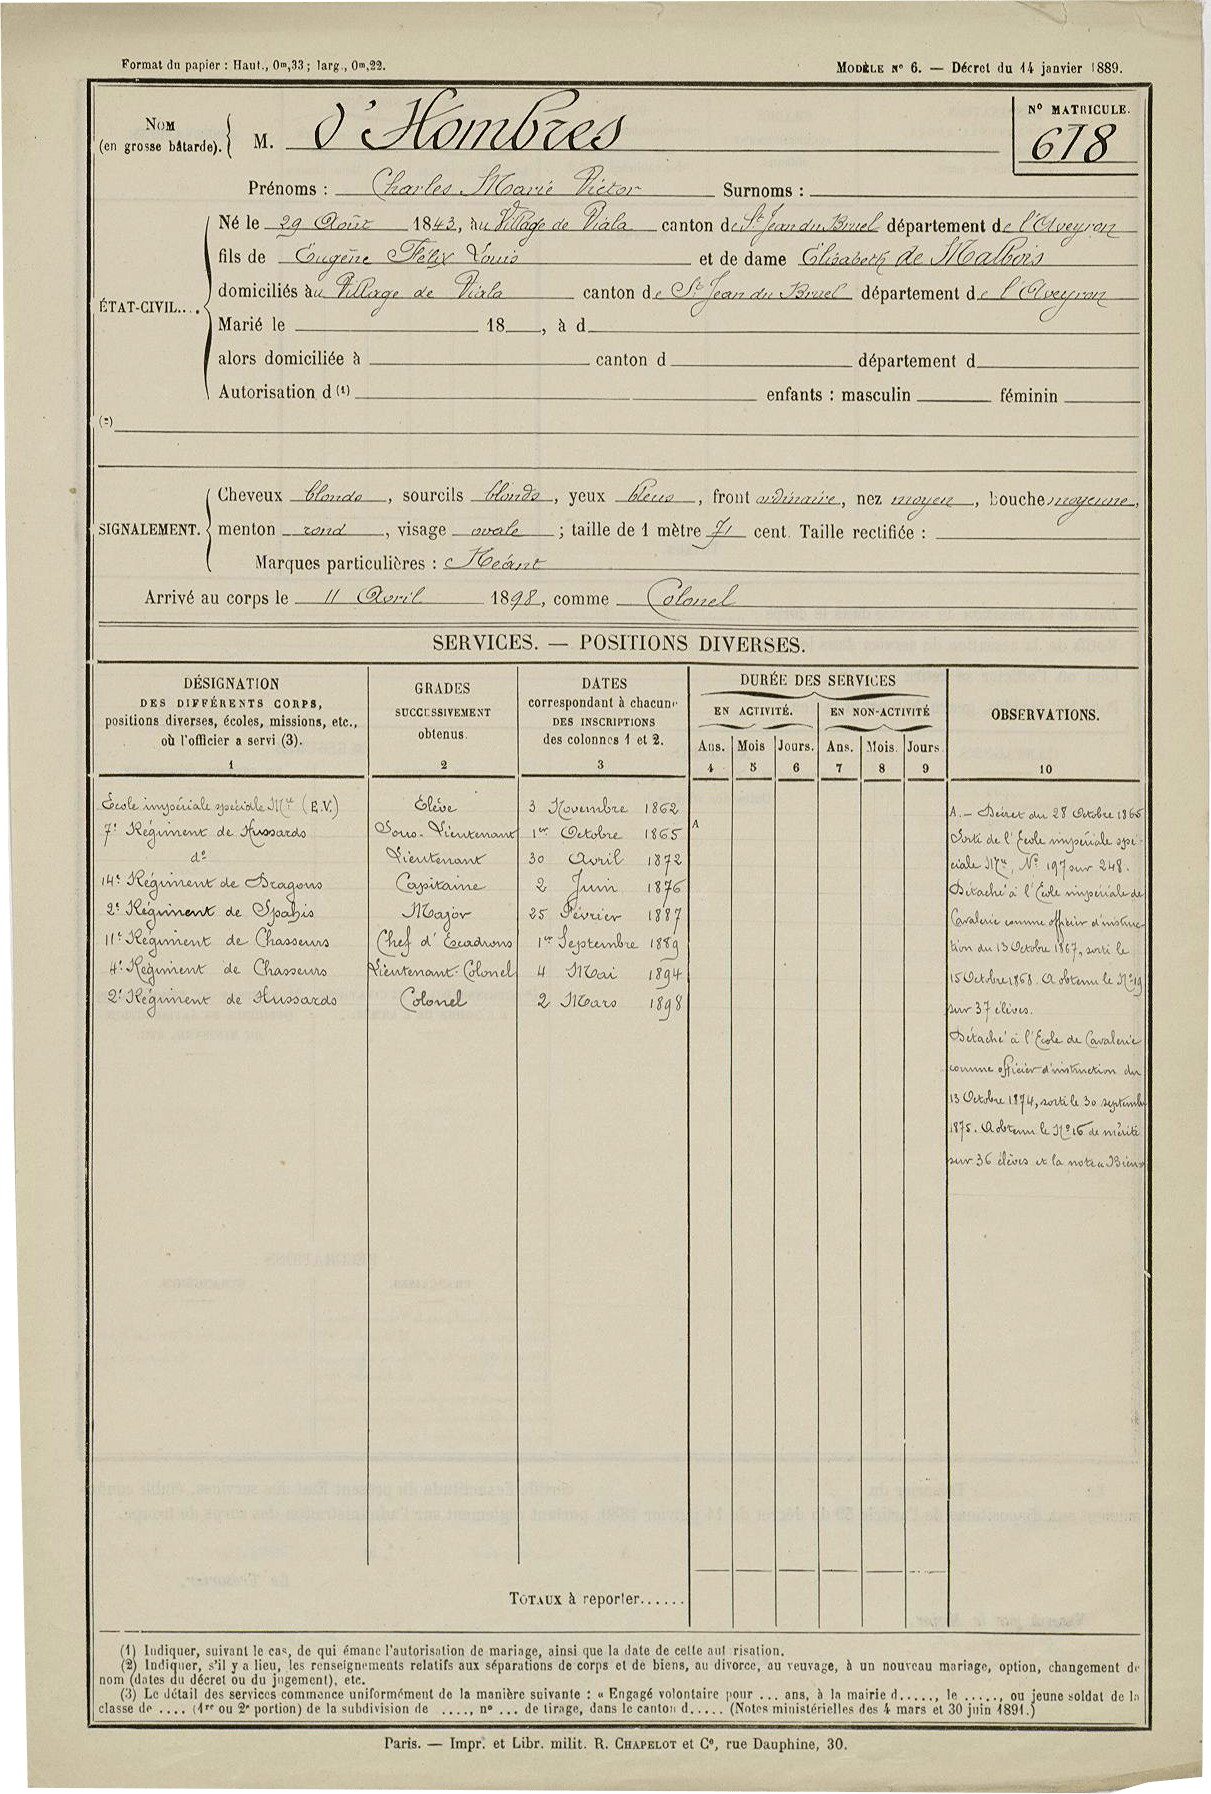 Format du papier : Haut., 0m,33 ; larg., 0m,22.
MODÈLE N° 6. — Décret du 14 janvier 1889.
NOM
(en grosse bâtarde).
M. d'Hombres
N° MATRICULE.
618
Prénoms : Charles Marie Victor Surnoms :
ÉTAT-CIVIL....
Né le 29 Août 1843, au Village de Viala canton de St Jean du Bruel département de l'Aveyron
fils de Eugène Félix Louis et de dame Elisabeth de Malbois
domiciliés au Village de Viala canton de St Jean du Bruel département de l'Aveyron
Marié le 18 , à d
alors domiciliée à canton d département d
Autorisation d (1) enfants : masculin féminin
(2)
SIGNALEMENT.
Cheveux blonds, sourcils blonds, yeux bleus, front ordinaire, nez moyen, bouche moyenne,
menton rond, visage ovale ; taille de 1 mètre 71 cent. Taille rectifiée :
Marques particulières : Néant
Arrivé au corps le 11 Avril 1898, comme Colonel
SERVICES. — POSITIONS DIVERSES.
DÉSIGNATION
DES DIFFÉRENTS CORPS,
positions diverses, écoles, missions, etc.,
où l'officier a servi (3).
1
GRADES
SUCCESSIVEMENT
obtenus.
2
DATES
correspondant à chacune
DES INSCRIPTIONS
des colonnes 1 et 2.
3
DURÉE DES SERVICES
EN ACTIVITÉ. EN NON-ACTIVITÉ
Ans. Mois Jours. Ans. Mois. Jours
4 5 6 7 8 9
OBSERVATIONS.
10
Ecole impériale spéciale Mre (E.V.) Elève 3 Novembre 1862
7e Régiment de Hussards Sous-Lieutenant 1er Octobre 1865 A
do Lieutenant 30 Avril 1872
14e Régiment de Dragons Capitaine 2 Juin 1876
2e Régiment de Spahis Major 25 Février 1887
11e Régiment de Chasseurs Chef d'Escadrons 1er Septembre 1889
4e Régiment de Chasseurs Lieutenant-Colonel 4 Mai 1894
2e Régiment de Hussards Colonel 2 Mars 1898
A. — Décret du 28 Octobre 1865
Sorti de l'Ecole impériale spé-
ciale Mre, No 197 sur 248.
Détaché à l'Ecole impériale de
Cavalerie comme officier d'instruc-
tion du 13 Octobre 1867, sorti le
15 Octobre 1868. A obtenu le No 19
sur 37 élèves.
Détaché à l'Ecole de Cavalerie
comme officier d'instruction du
13 Octobre 1874, sorti le 30 septembre
1875. A obtenu le No 16 de mérite
sur 36 élèves et la note « Bien »
TOTAUX à reporter......
(1) Indiquer, suivant le cas, de qui émane l'autorisation de mariage, ainsi que la date de cette aut risation.
(2) Indiquer, s'il y a lieu, les renseignements relatifs aux séparations de corps et de biens, au divorce, au veuvage, à un nouveau mariage, option, changement de
nom (dates du décret ou du jugement), etc.
(3) Le détail des services commence uniformément de la manière suivante : « Engagé volontaire pour ... ans, à la mairie d....., le ....., ou jeune soldat de la
classe de .... (1re ou 2e portion) de la subdivision de ...., no ... de tirage, dans le canton d..... (Notes ministérielles des 4 mars et 30 juin 1891.)
Paris. — Impr. et Libr. milit. R. CHAPELOT et Ce, rue Dauphine, 30.